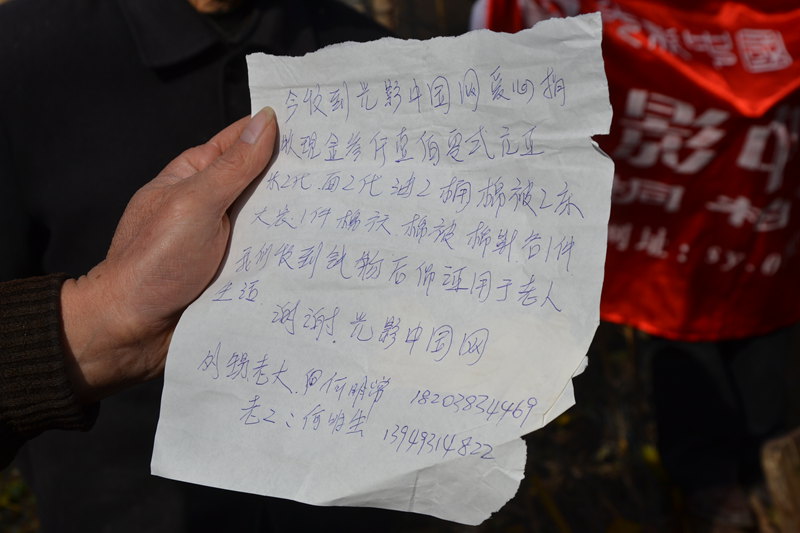 今收到光影中国网爱心捐
款现金叁仟壹佰零贰元正
米2代.面2代油2桶棉被2床
大衣1件棉衣棉被棉鞋各1件
我们收到钱物后保证用于老人
生活.谢谢.光影中国网
老大.何明常 18203834469
老2:何明生 13949314822
影中
网址:sy.